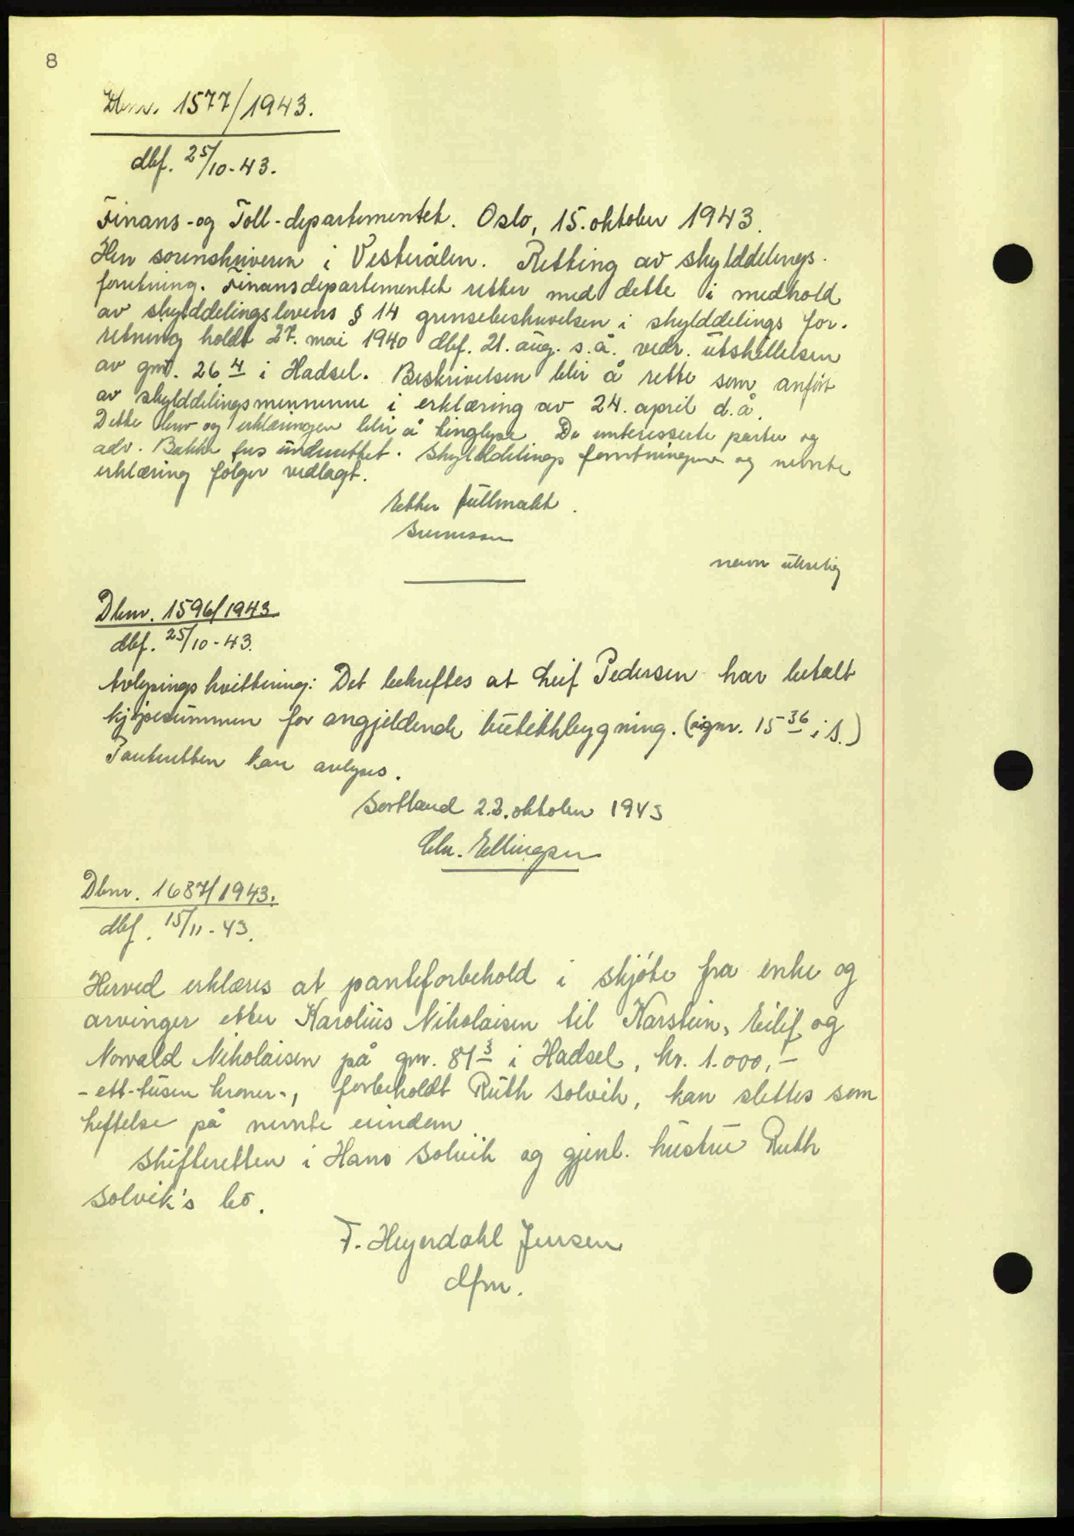 8
Dbnr. 1577/1943.
dbf. 25/10-43.
Finans- og Toll-departementet. Oslo, 15. oktober 1943.
Herr sorenskriveren i Vesterålen. Retting av skylddelings-
forretning. Finansdepartementet retter med dette i medhold
av skylddelingslovens § 14 grensebeskrivelsen i skylddelings for-
retning holdt 27. mai 1940 dbf. 21. aug. s.å. vedr. utskillelsen
av gnr. 26 4 i Hadsel. Beskrivelsen blir å rette som anført
av skylddelingsmennene i erklæring av 24. april d.å.
Dette brev og erklæringen blir å tinglyse. De interesserte parter og
adv. Bakke her underrettet. Skylddelings forretningen og nevnte
erklæring følger vedlagt.
Etter fullmakt.
navn utydelig
Dbnr. 1596/1943
dbf. 25/10-43.
Avlysings kvittering: Det bekreftes at Leif Pedersen har betalt
kjøpesummen for angjeldende butikkbygning. (gnr. 15 36 i S.)
Panteretten kan avlyses.
Sortland 22. oktober 1943
Chr. Ellingsen
Dbnr. 1687/1943.
dbf. 15/11-43.
Herved erklæres at panteforbehold i skjøte fra enke og
arvinger etter Karolius Nikolaisen til Karstein, Eilif og
Norvald Nikolaisen på gnr. 81 3 i Hadsel, kr. 1.000,-
- ett-tusen kroner-, forbeholdt Ruth Solvik, kan slettes som
heftelse på nevnte eiendom
Skifteretten i Hans Solvik og gjenl. hustru Ruth
Solvik's bo.
F. Heyerdahl Jensen
dfm.